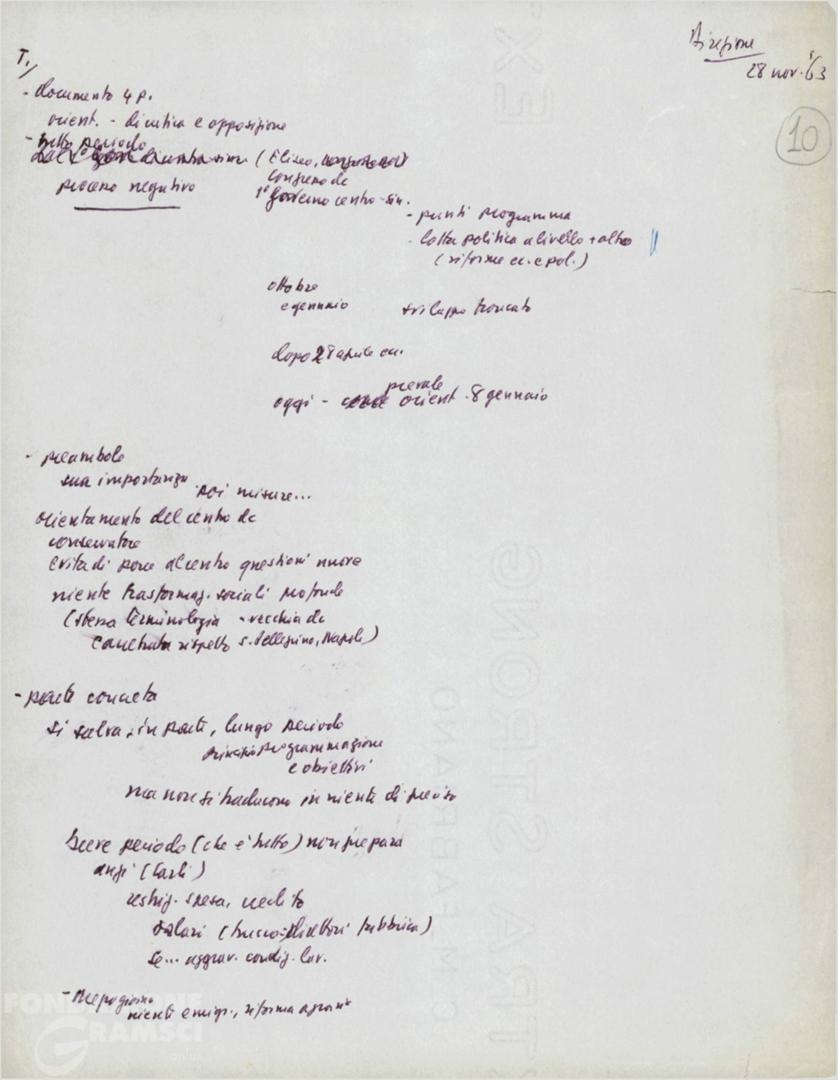 Direzione
28 nov. '63
10
T./
- documento 4 p.
orient. - di critica e opposizione
- tutto periodo
(Eliseo,
processo negativo
congresso dc
1° governo centro-sin.
- punti programma
- lotta politica a livello + alto
(riforme ec. e pol.)
ottobre
e gennaio sviluppo troncato
dopo 28 aprile
prevale
oggi - orient. 8 gennaio
- preambolo
sua importanza poi misure...
orientamento del centro dc
conservatore
evita di porre al centro questioni nuove
niente trasformaz. sociali profonde
(stessa terminologia - vecchia dc
rispetto S. Pellegrino, Napoli)
- parte concreta
si salva, in parte, lungo periodo
principio programmazione
e obiettivi
ma non si traducono in niente di preciso
breve periodo (che è tutto) non prepara
anzi (Carli)
restriz. spesa, credito
salari (direttori fabbrica)
se... aggrav. condiz. lav.
- Mezzogiorno
niente emigr., riforma agraria
FONDAZIONE
GRAMSCI
onlus
C. M. FABRIANO
EXTRA STRONG